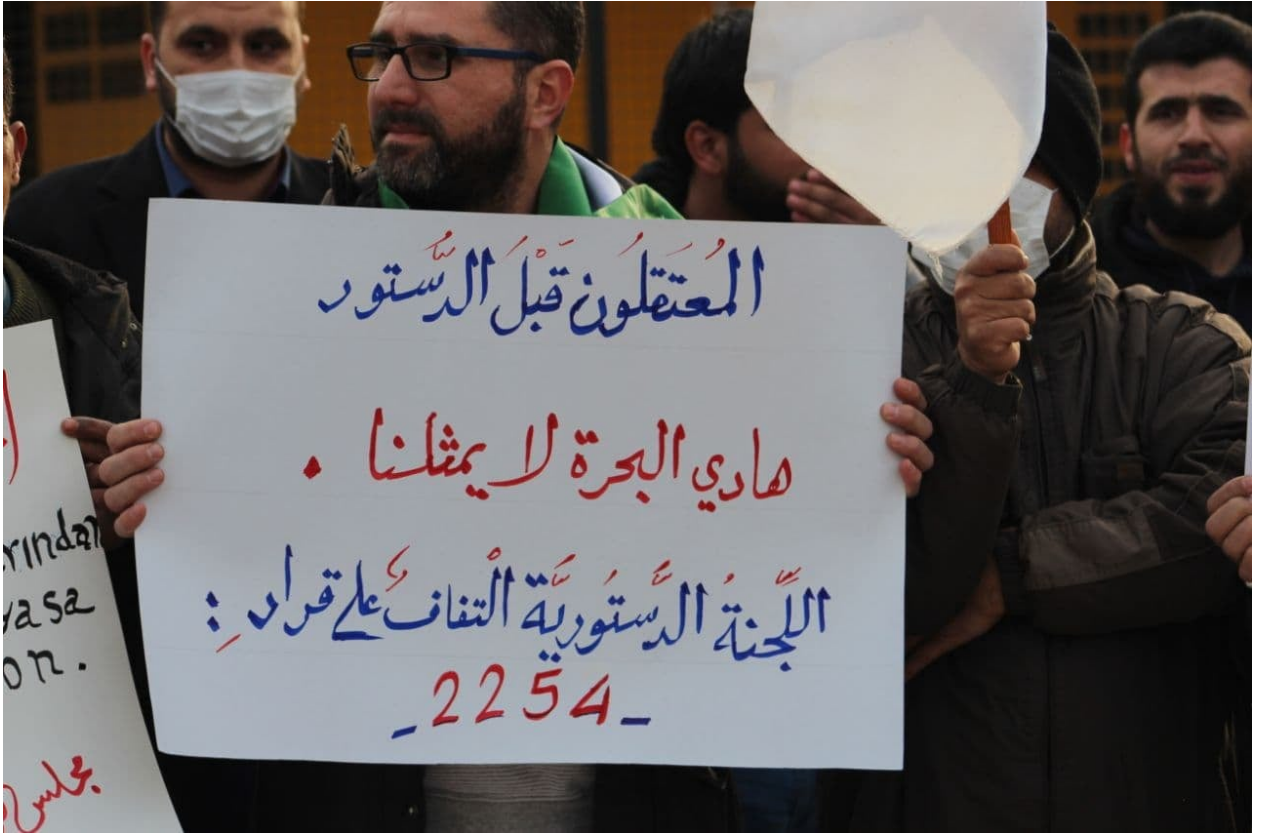 المُعتقَلُون قَبْلَ الدَّستُور
هادي البحرة لا يمثلنا .
اللَّجنةُ الدَّستُوريَّة الْتفافٌ على قرارِ :
_2254_
yasa
on.
مجلس